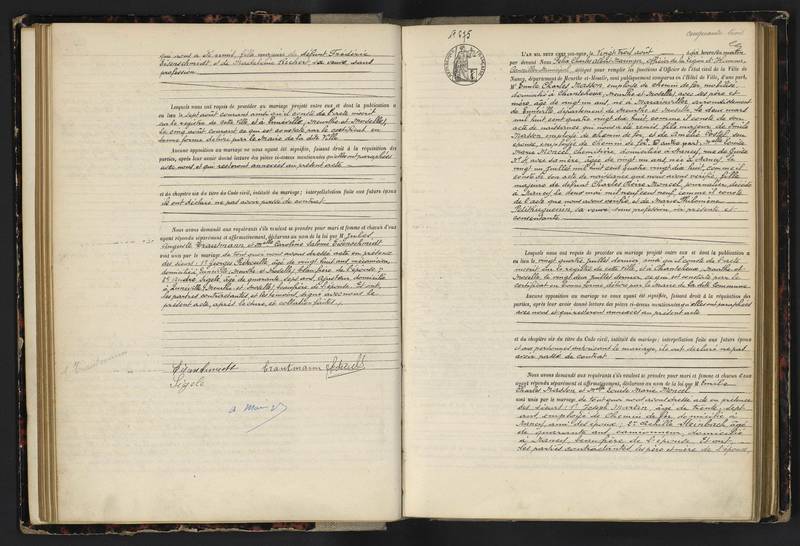 qui nous a été remis, fille majeure de défunt Frédéric
Eisenschmidt et de Madeleine
profession
Lesquels nous ont requis de procéder au mariage projeté entre eux et dont la publication a
eu lieu le sept août courant ainsi qu'il conste de l'acte inscrit
sur le registre de cette Ville et à Lunéville, (Meurthe et Moselle),
le cinq août courant ce qui est constaté par le certificat en
bonne forme délivré par le Maire de la dite Ville
Aucune opposition au mariage ne nous ayant été signifiée, faisant droit à la réquisition des
parties, après leur avoir donné lecture des pièces ci-dessus mentionnées qu'elles ont paraphées
avec nous et qui resteront annexées au présent acte
et du chapitre six du titre du Code civil, intitulé du mariage ; interpellation faite aux futurs époux
ils ont déclaré ne pas avoir passé de contrat
Nous avons demandé aux requérants s'ils veulent se prendre pour mari et femme et chacun d'eux
ayant répondu séparément et affirmativement, déclarons au nom de la loi que M. Jules
Auguste Trautmann et Mlle Caroline Salomé Eisenschmidt
sont unis par le mariage, de tout quoi nous avons dressé acte en présence
des sieurs : 1° Georges âgé de vingt huit ans, mécanicien
domicilié à Lunéville, (Meurthe et Moselle), beau-frère de l'épouse ;
2° André Sigelé, âgé de quarante sept ans, ajusteur, domicilié
à Lunéville, (Meurthe et Moselle), beau-frère de l'épouse. Et ont,
les parties contractantes et les témoins signé avec nous le
présent acte, après lecture et collation faites.
Eisenschmidt Trautmann
Sigelé
N° 635
L'AN MIL NEUF CENT le vingt trois août, à dix heures du matin
par devant Nous Félix Charles Albert officier de la Légion d'Honneur
Conseiller Municipal, délégué pour remplir les fonctions d'Officier de l'état civil de la Ville de
Nancy, département de Meurthe-et-Moselle, sont publiquement comparus en l'Hôtel de Ville, d'une part,
M. Emile Charles Masson, employé de chemin de fer, mobilisé,
domicilié à (Meurthe et Moselle), avec ses père et
mère, âgé de vingt un ans, né à arrondissement
de Lunéville, département de Meurthe et Moselle, le deux mars
mil huit cent quatre vingt dix huit, comme il conste de son
acte de naissance qui nous a été remis, fils majeur de Emile
Masson, employé de chemin de fer, et de Amélie son
épouse, employée de chemin de fer. D'autre part, Mlle Louise
Marie Morcel, chemisière, domiciliée à Nancy, rue du
N° avec sa mère, âgée de vingt un ans, née à Nancy le
vingt un juillet mil huit cent quatre vingt dix huit, comme il
conste de son acte de naissance que nous avons vérifié, fille
majeure de défunt Charles Pierre Morcel, journalier, décédé
à Nancy le deux mai mil neuf cent neuf, comme il conste
de l'acte que nous avons vérifié, et de Marie Philomène
sa veuve, sans profession, ici présente et
consentante
Lesquels nous ont requis de procéder au mariage projeté entre eux et dont la publication a
eu lieu le vingt quatre juillet dernier, ainsi qu'il conste de l'acte
inscrit sur le registre de cette ville, et à (Meurthe et
Moselle), le vingt deux juillet dernier, ce qui est constaté par le
certificat en bonne forme délivré par le Maire de la dite Commune
Aucune opposition au mariage ne nous ayant été signifiée, faisant droit à la réquisition des
parties, après leur avoir donné lecture des pièces ci-dessus mentionnées qu'elles ont paraphées
avec nous et qui resteront annexées au présent acte
et du chapitre six du titre du Code civil, intitulé du mariage ; interpellation faite aux futurs époux
et aux personnes autorisant le mariage, ils ont déclaré ne pas
avoir passé de contrat
Nous avons demandé aux requérants s'ils veulent se prendre pour mari et femme et chacun d'eux
ayant répondu séparément et affirmativement, déclarons au nom de la loi que M. Emile
Charles Masson et Mlle Louise Marie Morcel
sont unis par le mariage, de tout quoi nous avons dressé acte en présence
des sieurs : 1° Joseph Martin, âgé de trente sept
ans, employé de chemin de fer, domicilié à
Nancy, ami des époux ; 2° Achille Steinbach, âgé
de quarante ans, camionneur, domicilié
à Nancy, beau-père de l'épouse. Et ont,
les parties contractantes, les père et mère de l'époux,